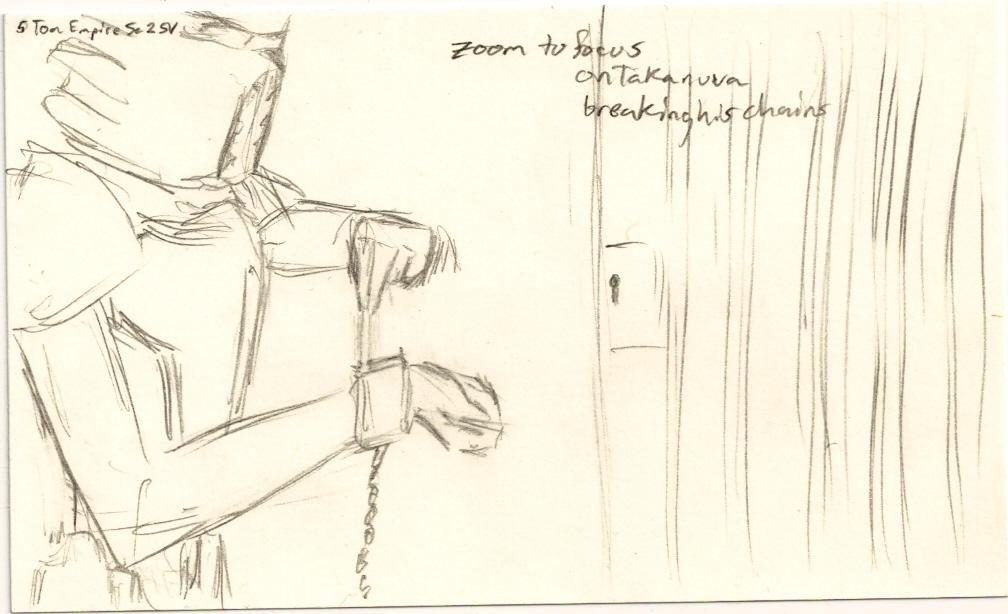 5 Toa Empire Sc 2 SV
zoom to focus
on Takanuva
breaking his chains